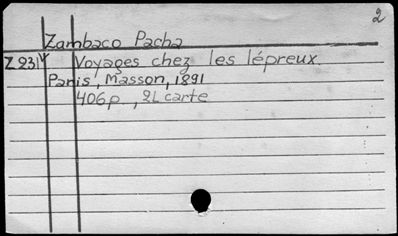 2
Zambaco Pacha
Z 231v Voyages chez les lépreux.
Paris, Masson, 1891
406p., 2L carte